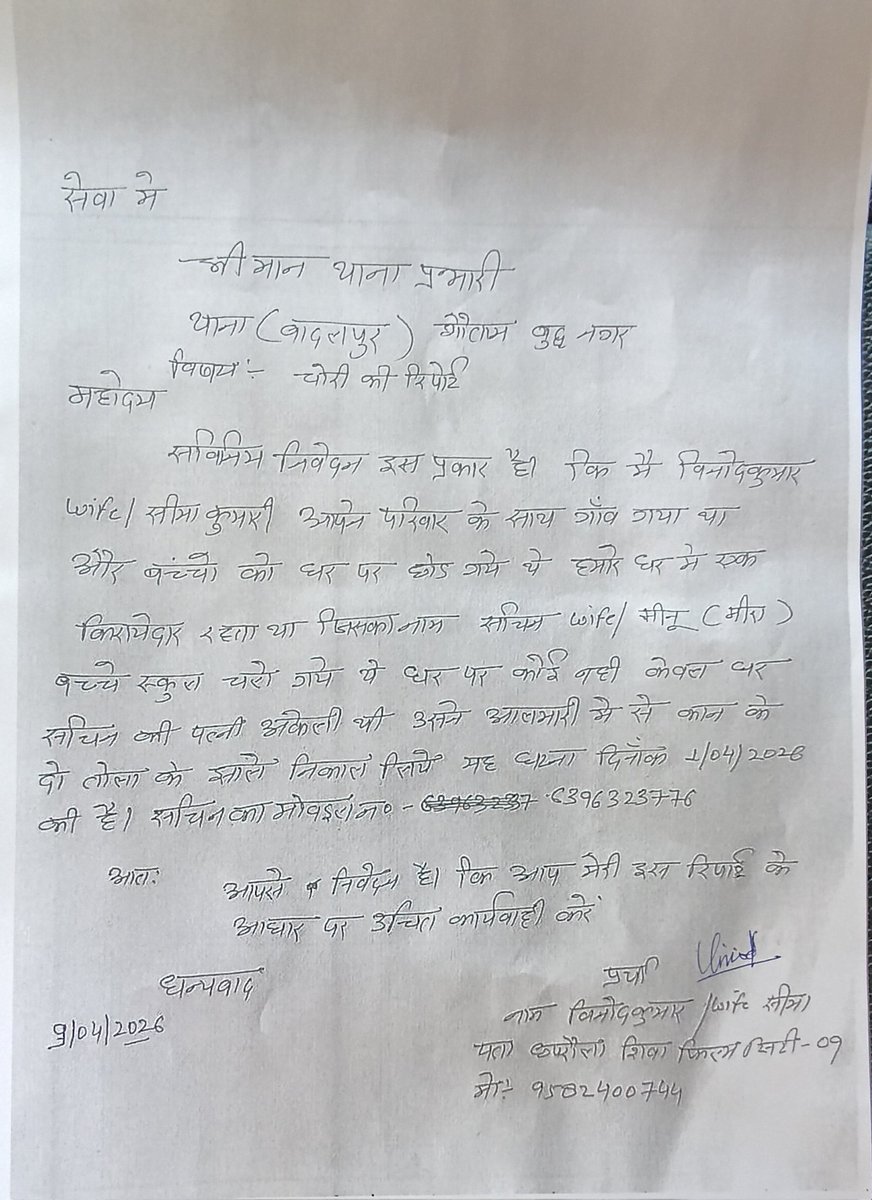 सेवा मे
श्री मान थाना प्रभारी
थाना (बादलपुर) गौतम बुद्ध नगर
विषय:- चोरी की रिपोर्ट
महोदय
सविनिय निवेदन इस प्रकार है। कि मै विनोदकुमार
wife/ सीमा कुमारी अपने परिवार के साथ गाँव गया था
और बच्चो को घर पर छोड गये थे हमारे घर मे एक
किरायेदार रहता था जिसका नाम सचिन wife/ मीनू (मीरा)
बच्चे स्कुल चले गये थे घर पर कोई नही केवल घर
सचिन की पत्नी अकेली थी उसने आलमारी मे से कान के
दो तोला के झाले निकाल लिये यह घटना दिनाँक 1/04/2026
की है। सचिन का मोवइल न० - 6396323776
अत:
आपसे निवेदन है। कि आप मेरी इस रिपोर्ट के
आधार पर उचित कार्यवाही करें
धन्यवाद
9/04/2026
प्रार्थी Vinod
नाम विनोदकुमार /wife सीमा
पता छपरौला शिवा फिल्म सिटी-09
मो:- 9582400744